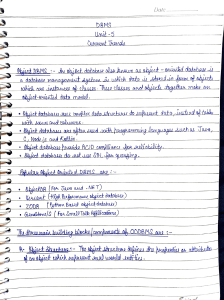 Date
DBMS
Unit - 5
Current Trends
Object DBMS :- An object database also known as object-oriented database is
a database management system in which data is stored in form of objects
which are instances of classes. These classes and objects together make an
object oriented data model.
• Object databases use complex data structures to represent data, instead of table
with rows and columns.
• Object databases are often used with programming languages such as Java,
C, Node js and Kotlin.
• Object databases provide ACID compliance for reliability.
• Object databases do not use SQL for querying.
Popular Object Oriented DBMS are :-
• ObjectDB (For Java and .NET)
• Versant (High Performance object database)
• ZODB (Python Based object database)
• (For SmallTalk Applications)
The three main building blocks/components of OODBMS are :-
Object Structure :- The Object structure defines the properties or attributes
of an object which represent real world entities.